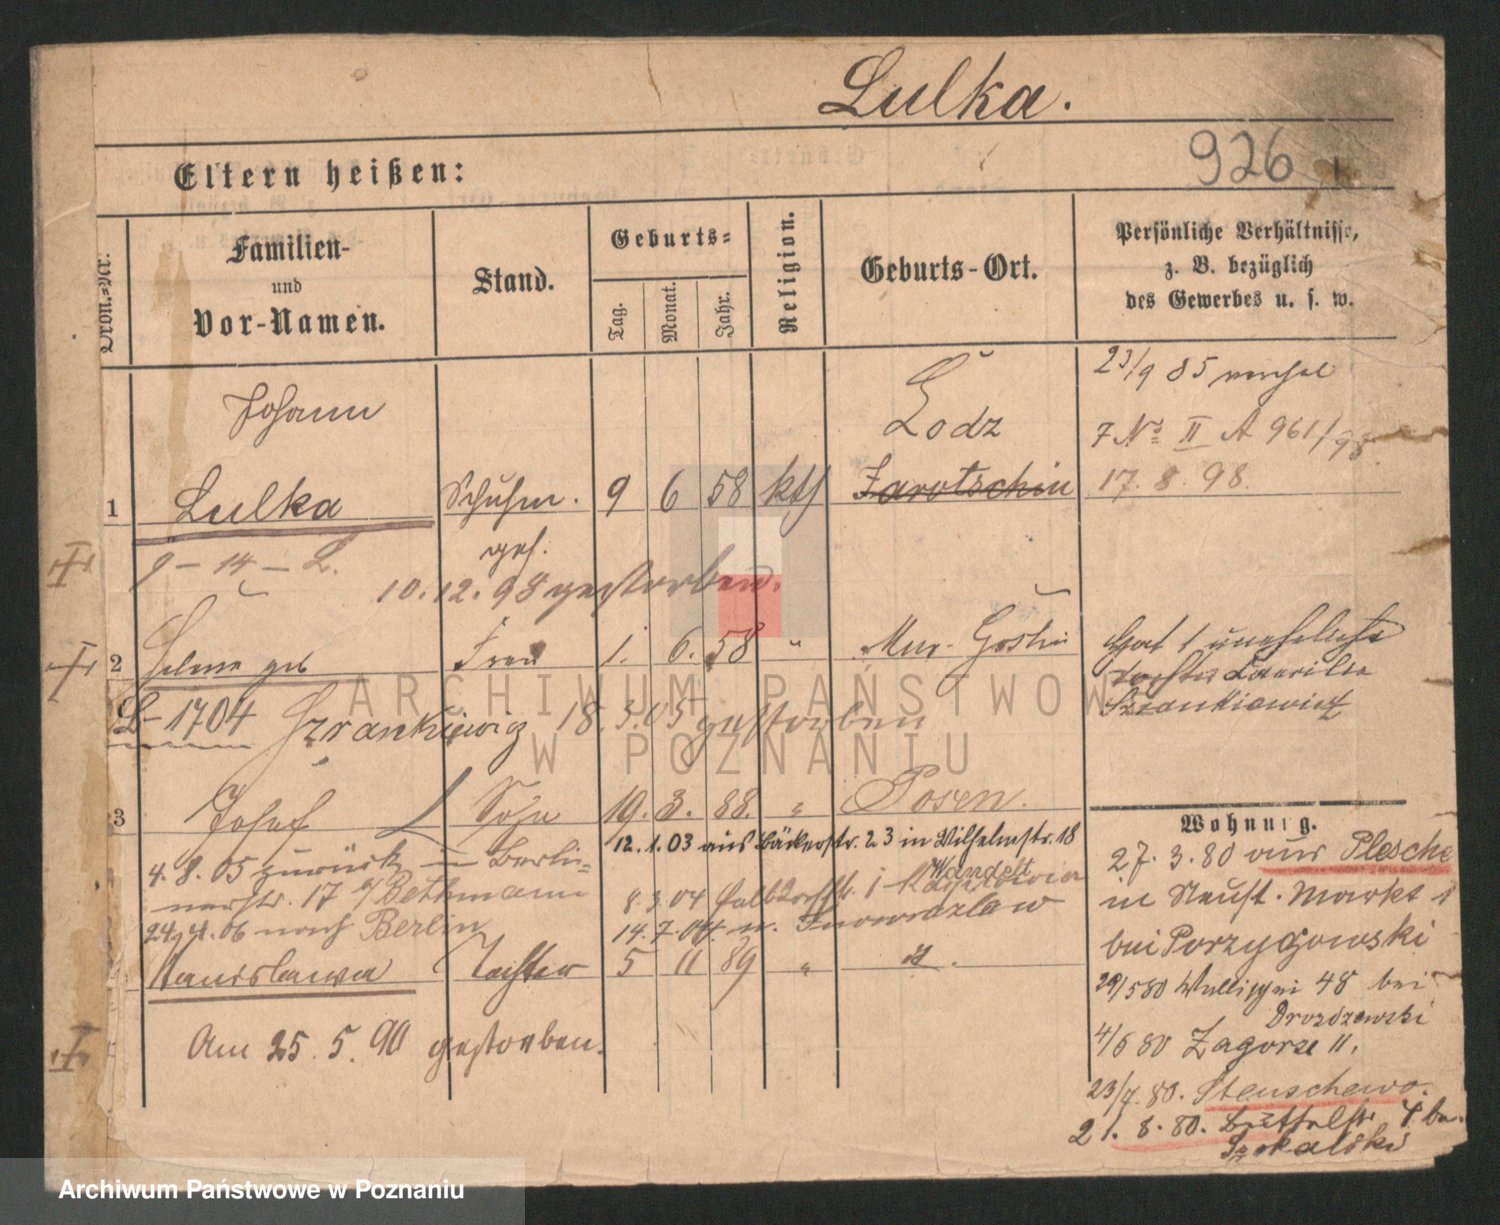 Lulka.
926
Eltern heißen:
Dron.-Nr.
Familien-
und
Vor-Namen.
Stand.
Geburts-
Tag.
Monat.
Jahr.
Religion.
Geburts-Ort.
Persönliche Verhältnisse,
z. B. bezüglich
des Gewerbes u. s. w.
Johann
Lodz
23/9 85
7 No II A 961/98
17. 8. 98.
1 Lulka Schuhm. 9 6 58 kth Jarotschin
9 - 14 - L.
10. 12. 98 gestorben.
2 Helene geb Frau 1. 6. 58 " Mur. Goslin
Hat 1 uneheliche
Tochter
Szrankiewicz
L-1704 Szrankiewicz 18. 3. 05 gestorben
3 Josef L Sohn 19. 3. 88. " Posen.
12. 1. 03 aus Bäckerstr. 23 in Wilhelmstr. 18
4. 8. 05 zurück in Berli-
nerstr. 17 b/Bethmann
8. 3. 04
Wandelt
24/4. 06 nach Berlin
14. 7. 04 n. Inowrazlaw
Stanislawa Tochter 5 11 89 "
Am 25. 5. 90 gestorben.
Wohnung.
27. 3. 80 aus Plesche
in Neust. Markt
bei Porzygowski
29/5 80 Wallischei 48 bei
Drozdzewski
4/6 80 Zagorze 11.
23/7. 80. Stenschewo.
21. 8. 80. Büttelstr.
ARCHIWUM PAŃSTWOW
W POZNANIU
Archiwum Państwowe w Poznaniu